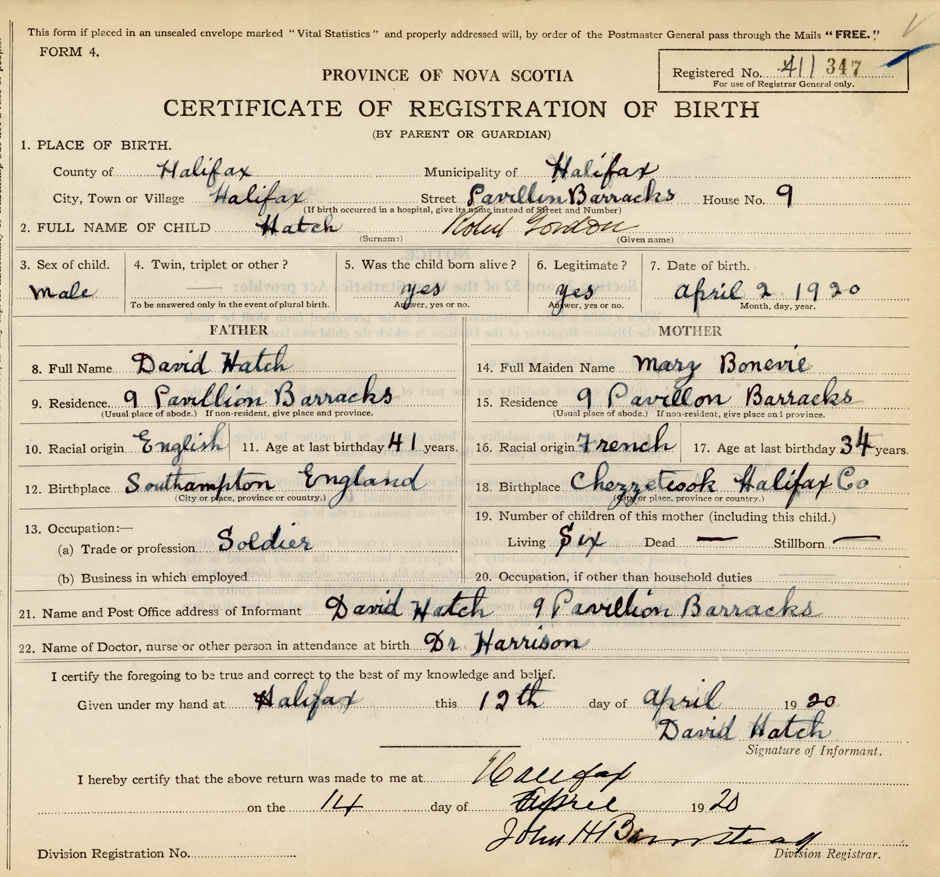 This form if placed in an unsealed envelope marked "Vital Statistics" and properly addressed will, by order of the Postmaster General pass through the Mails "FREE."
FORM 4.
PROVINCE OF NOVA SCOTIA
Registered No. 411 347
For use of Registrar General only.
CERTIFICATE OF REGISTRATION OF BIRTH
(BY PARENT OR GUARDIAN)
1. PLACE OF BIRTH.
County of Halifax Municipality of Halifax
City, Town or Village Halifax Street Pavillin Barracks House No. 9
(If birth occurred in a hospital, give its name instead of Street and Number)
2. FULL NAME OF CHILD Hatch Robert Gordon
(Surname) (Given name)
3. Sex of child. 4. Twin, triplet or other ? 5. Was the child born alive ? 6. Legitimate ? 7. Date of birth.
Male — yes yes April 2 1920
To be answered only in the event of plural birth. Answer, yes or no. Answer, yes or no. Month, day, year.
FATHER MOTHER
8. Full Name David Hatch 14. Full Maiden Name Mary Bonevie
9. Residence. 9 Pavillion Barracks 15. Residence 9 Pavillon Barracks
(Usual place of abode.) If non-resident, give place and province. (Usual place of abode.) If non-resident, give place and province.
10. Racial origin English 11. Age at last birthday 41 years. 16. Racial origin French 17. Age at last birthday 34 years.
12. Birthplace Southampton England 18. Birthplace Chezzetcook Halifax Co
(City or place, province or country.) (City or place, province or country.)
13. Occupation:— 19. Number of children of this mother (including this child.)
(a) Trade or profession Soldier Living Six Dead — Stillborn —
(b) Business in which employed 20. Occupation, if other than household duties
21. Name and Post Office address of Informant David Hatch 9 Pavillion Barracks
22. Name of Doctor, nurse or other person in attendance at birth Dr Harrison
I certify the foregoing to be true and correct to the best of my knowledge and belief.
Given under my hand at Halifax this 12th day of April 1920
David Hatch
Signature of Informant.
I hereby certify that the above return was made to me at Halifax
on the 14 day of April 1920
John H Barnstead
Division Registration No. Division Registrar.